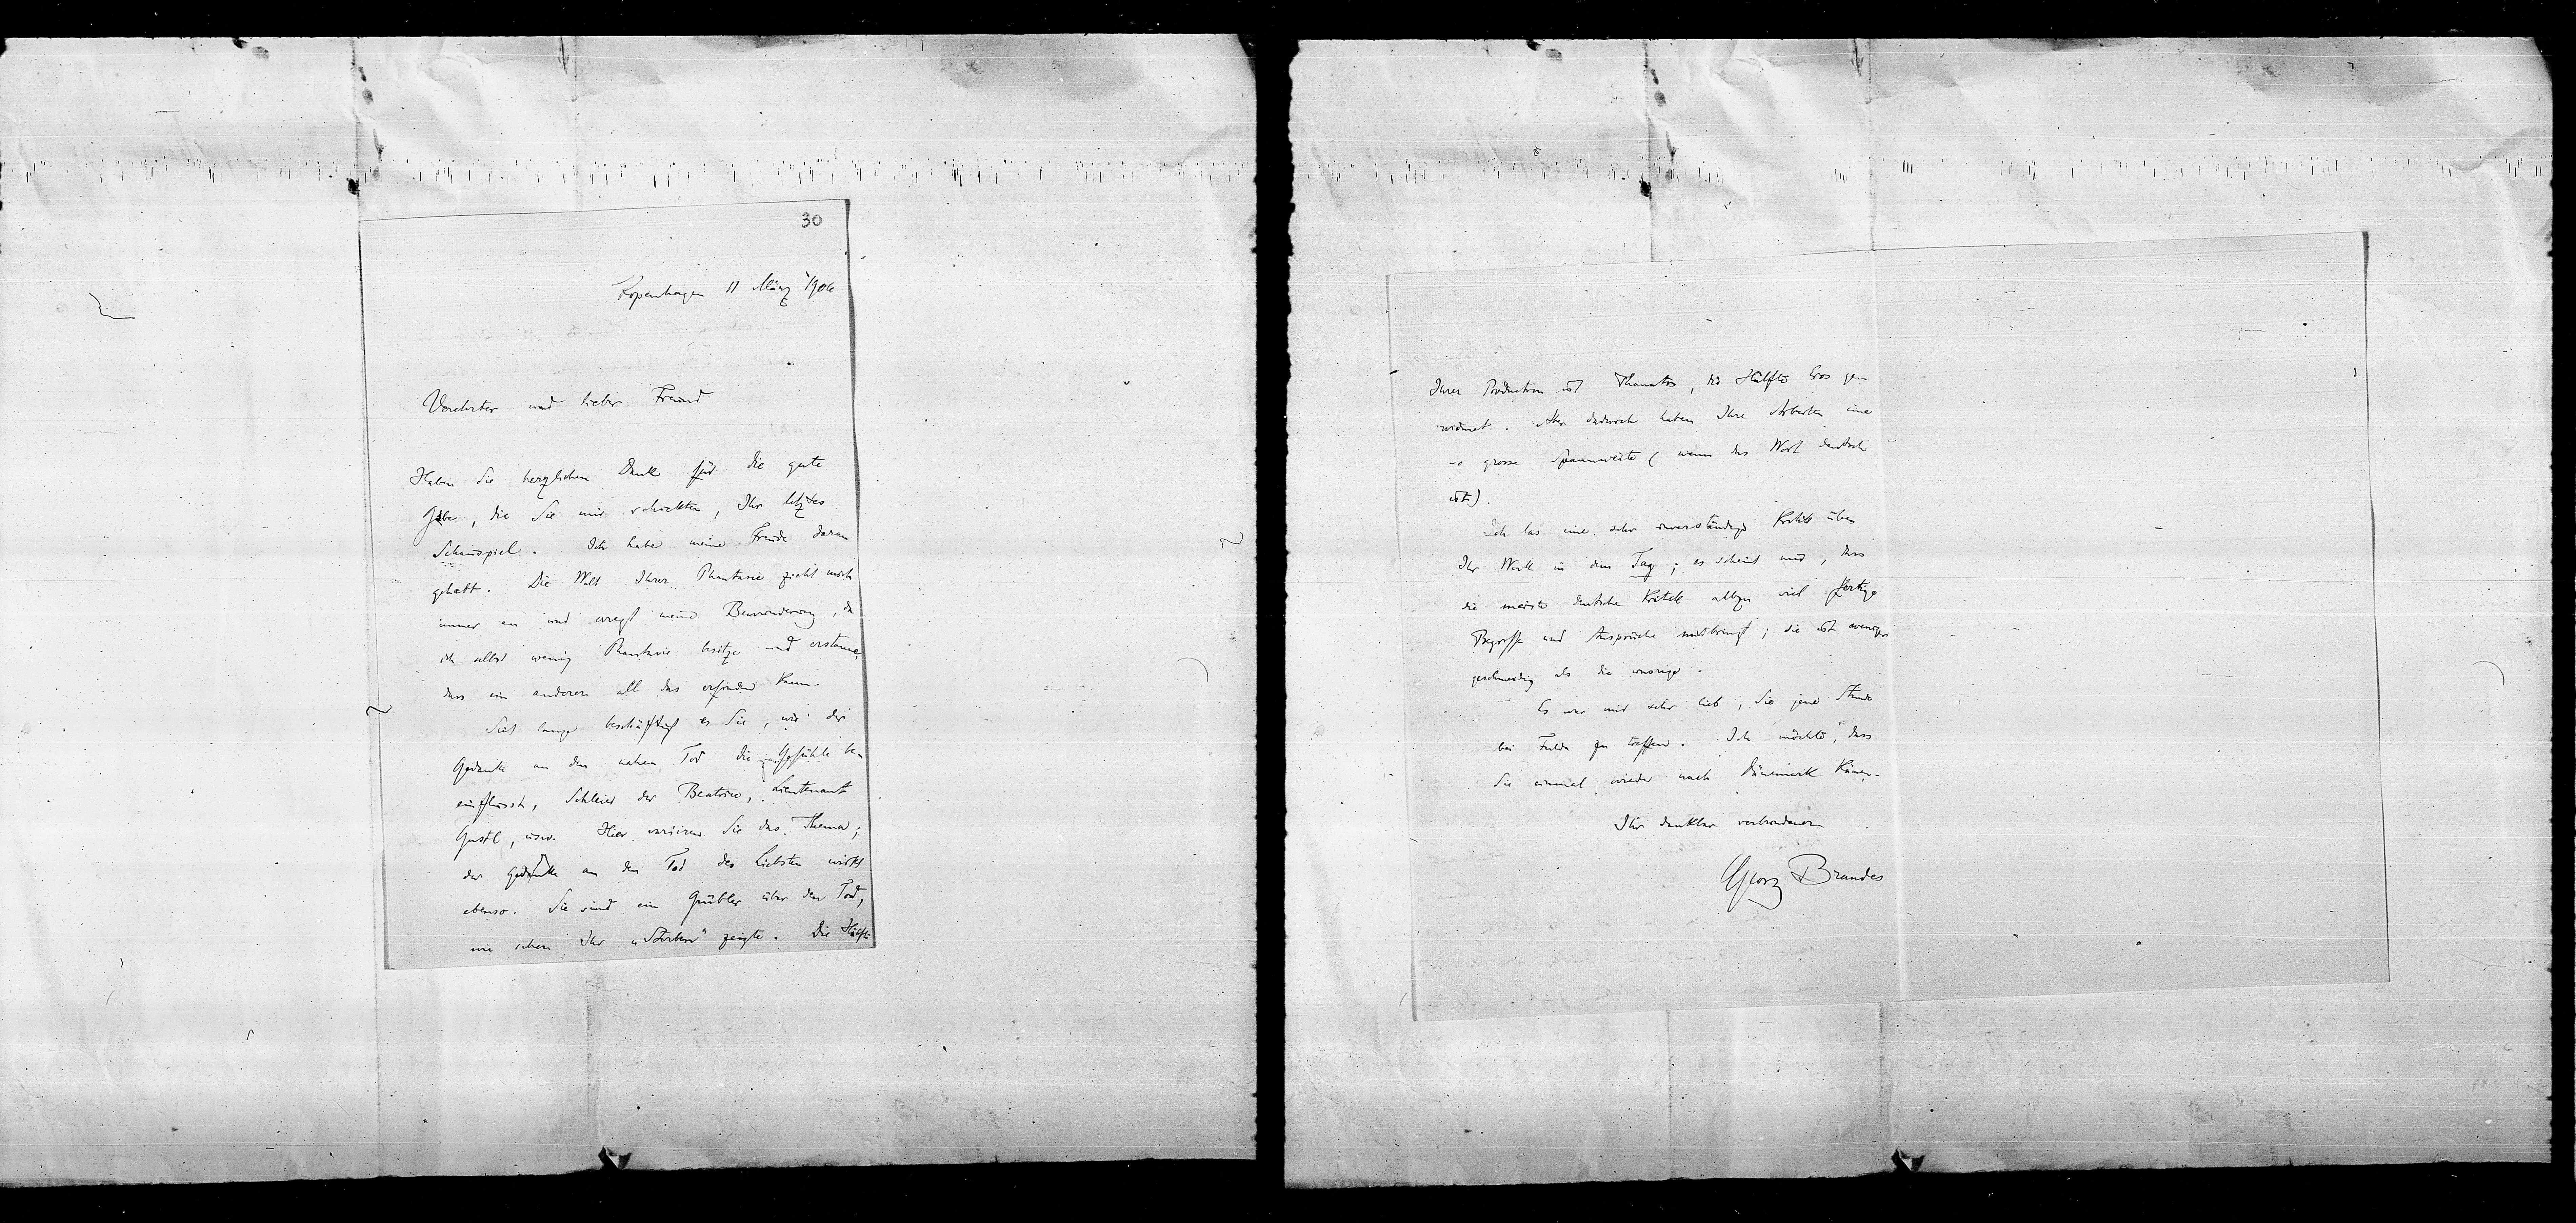 30
Kopenhagen 11 März 1906
Verehrter und lieber Freund
Haben Sie herzlichen Dank für die gute
Gabe, die Sie mir schickten, Ihr letztes
Schauspiel. Ich habe meine Freude daran
gehabt. Die Welt Ihrer Phantasie zieht mich
immer an und erregt meine Bewunderung, da
ich selbst wenig Phantasie besitze und erstaune,
dass ein anderer all das erfinden kann.
Seit lange beschäftigt es Sie, wie der
Gedanke an den nahen Tod die Gefühle be-
einflusst, Schleier der Beatrice, Lieutenant
Gustl, usw. Hier variiren Sie das Thema;
der Gedanke an den Tod des Liebsten wirkt
ebenso. Sie sind ein Grübler über den Tod,
wie schon Ihr „Sterben" zeigte. Die Hälfte
Ihrer Production ist Thanatos, die Hälfte Eros ge-
widmet. Aber dadurch haben Ihre Arbeiten eine
so grosse Spannweite (wenn das Wort deutsch
ist).
Ich las eine sehr unverständige Kritik über
Ihr Werk in dem Tag; es scheint mir, dass
die meiste deutsche Kritik allzu viel fertige
Begriffe und Ansprüche mitbringt; sie ist weniger
geschmeidig als die unsrige.
Es war mir sehr lieb, Sie jene Stunde
bei Fulda zu treffen. Ich möchte, dass
Sie einmal wieder nach Dänemark kämen.
Ihr dankbar verbundener
Georg Brandes